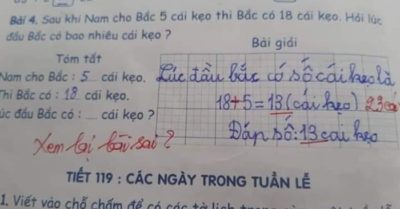 Bài 4. Sau khi Nam cho Bắc 5 cái kẹo thì Bắc có 18 cái kẹo. Hỏi lúc
đầu Bắc có bao nhiêu cái kẹo ?
Tóm tắt
Bài giải
Nam cho Bắc : 5 cái kẹo.
Thì Bắc có : 18 cái kẹo.
Lúc đầu Bắc có : ... cái kẹo ?
Lúc đầu bắc có số cái kẹo là
18+5=13(cái kẹo) 23cái
Đáp số: 13 cái kẹo
Xem lại bài sai ?
TIẾT 119 : CÁC NGÀY TRONG TUẦN LỄ
1. Viết vào chỗ chấm để có các tờ lịch trong